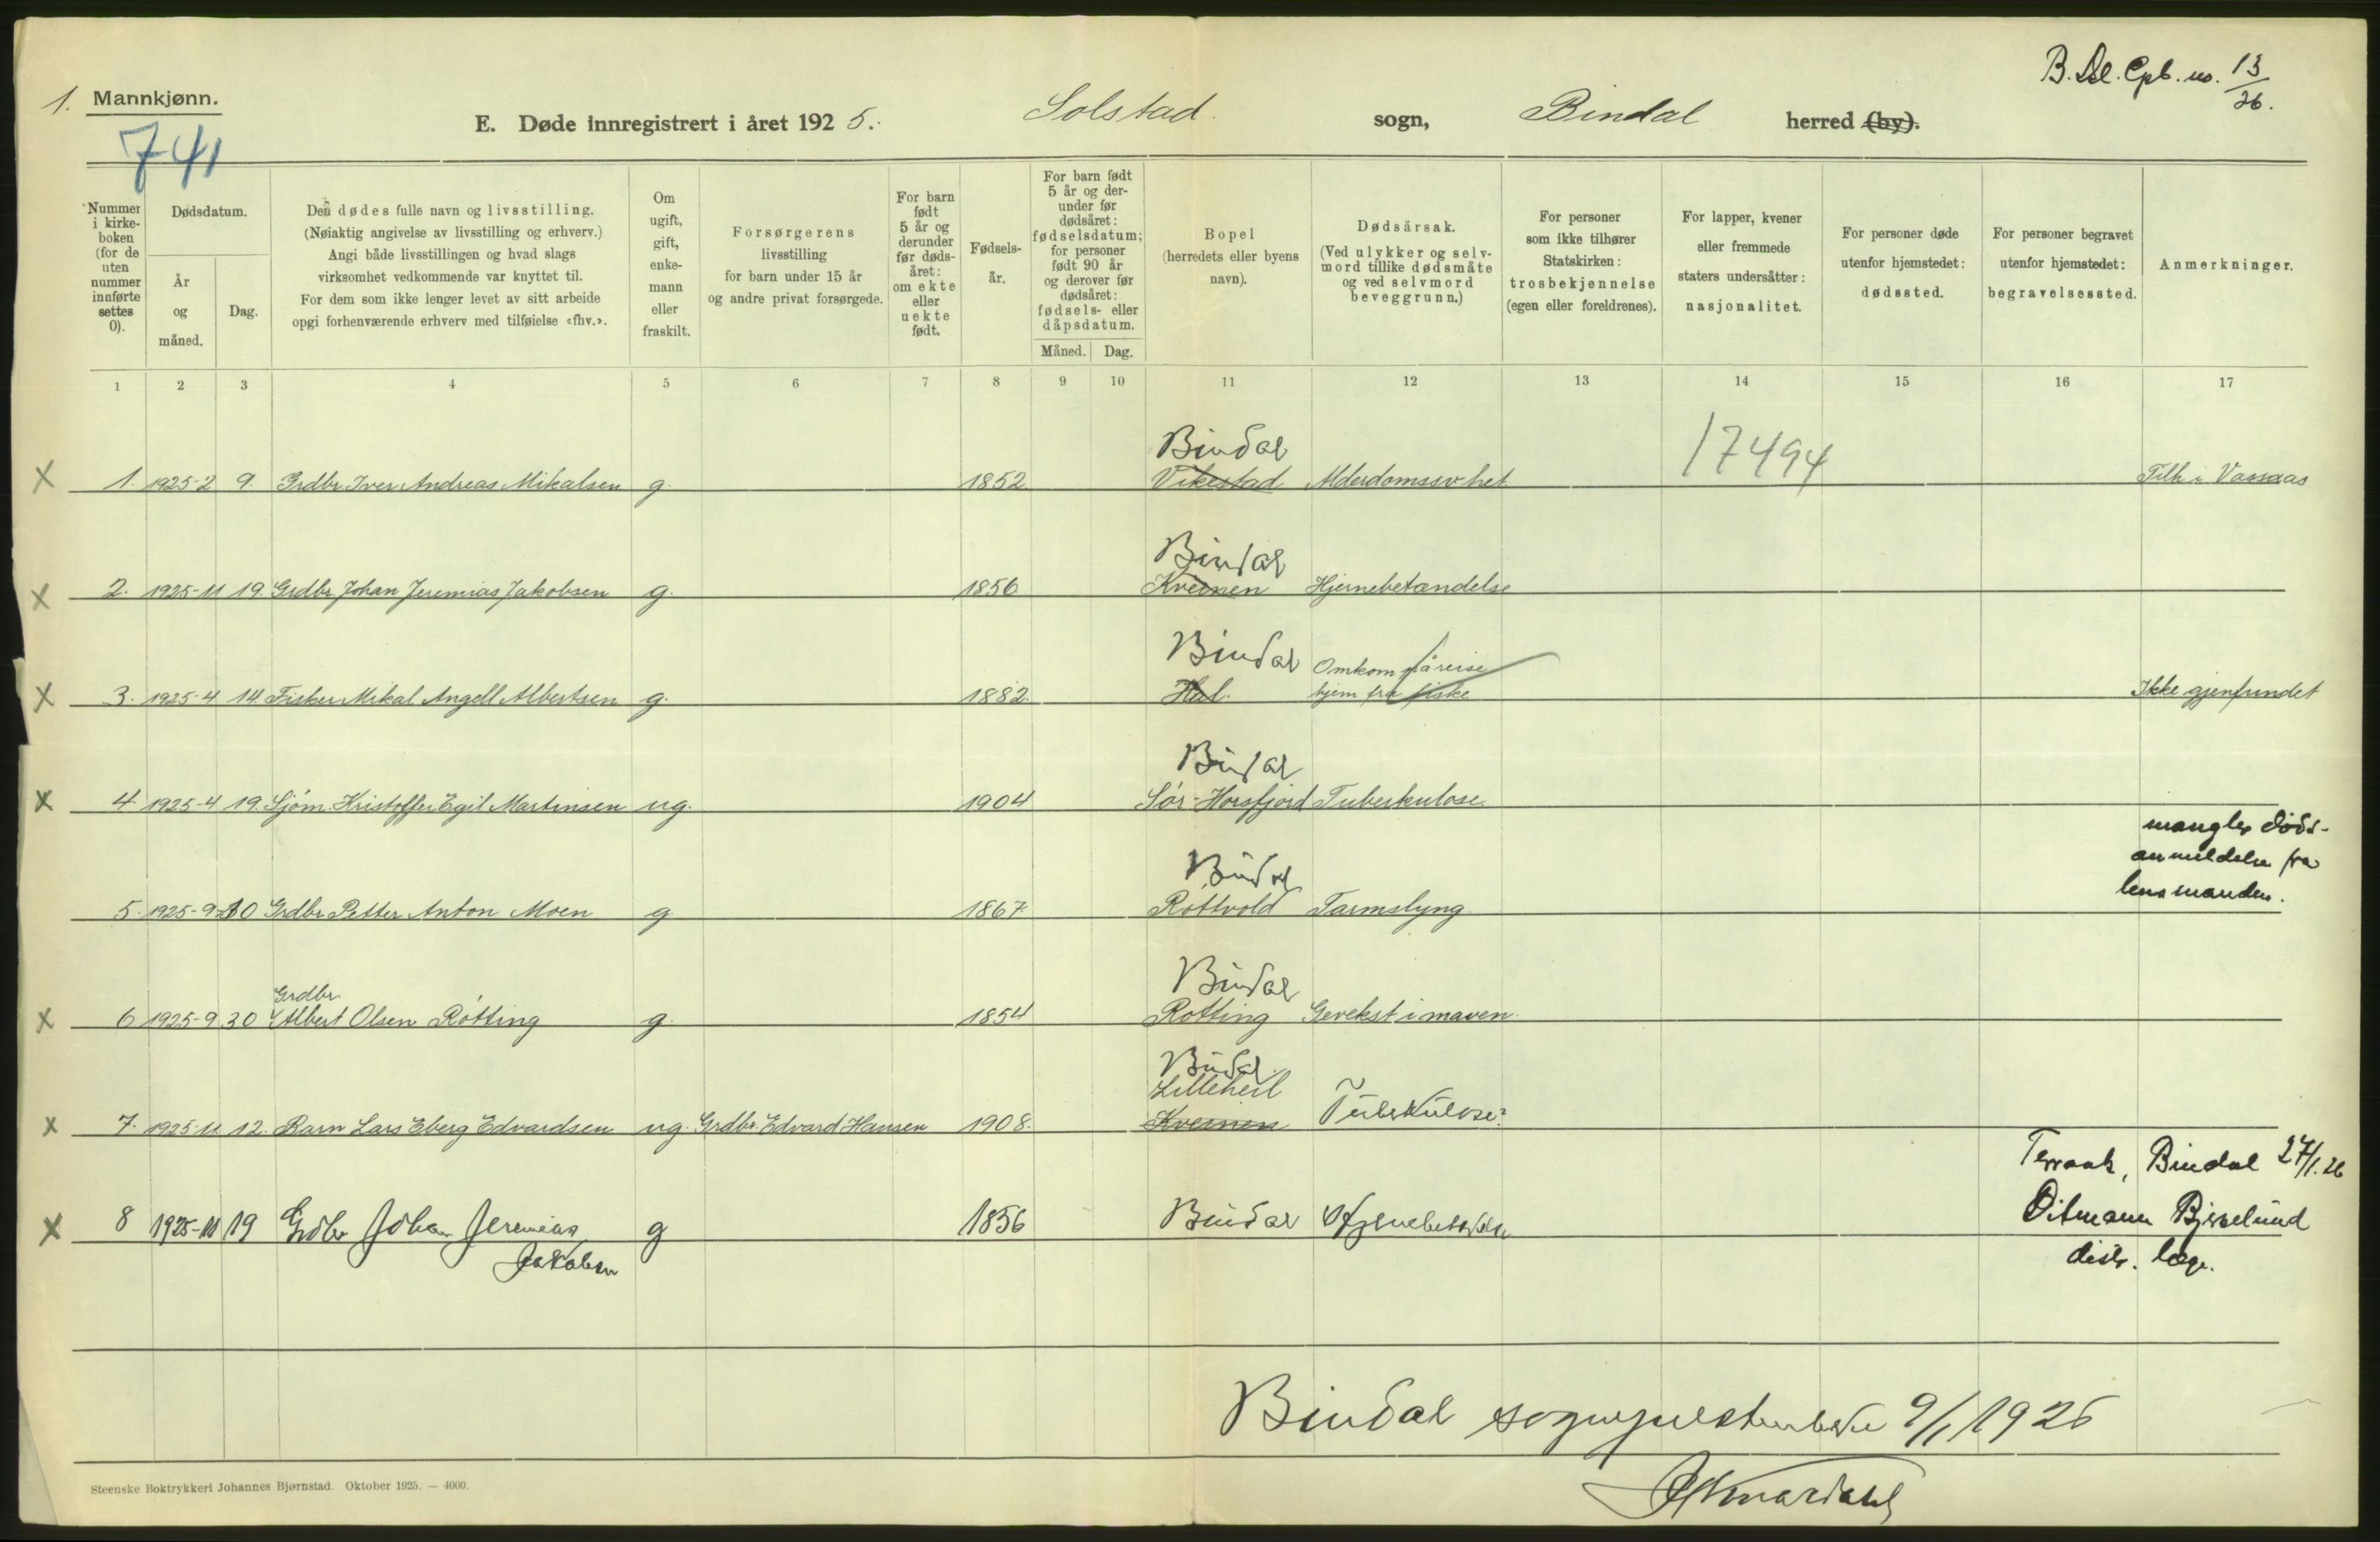 B. Dl. Cpb. no. 13/26.
1. Mannkjønn.
741
E. Døde innregistrert i året 1925. Solstad sogn, Bindal herred (by).
Nummer i kirke-boken (for de uten nummer innførte settes 0).
Dødsdatum.
År og måned.
Dag.
Den dødes fulle navn og livsstilling.
(Nøiaktig angivelse av livsstilling og erhverv.)
Angi både livsstillingen og hvad slags
virksomhet vedkommende var knyttet til.
For dem som ikke lenger levet av sitt arbeide
opgi forhenværende erhverv med tilføielse «fhv.».
Om ugift, gift, enke-mann eller fraskilt.
Forsørgerens
livsstilling
for barn under 15 år
og andre privat forsørgede.
For barn født 5 år og derunder før døds-året: om ekte eller uekte født.
Fødsels-år.
For barn født 5 år og der-under før dødsåret: fødselsdatum; for personer født 90 år og derover før dødsåret: fødsels- eller dåpsdatum.
Måned. Dag.
Bopel
(herredets eller byens
navn).
Dødsårsak.
(Ved ulykker og selv-
mord tillike dødsmåte
og ved selvmord
beveggrunn.)
For personer
som ikke tilhører
Statskirken:
trosbekjennelse
(egen eller foreldrenes).
For lapper, kvener
eller fremmede
staters undersåtter:
nasjonalitet.
For personer døde
utenfor hjemstedet:
dødssted.
For personer begravet
utenfor hjemstedet:
begravelsessted.
Anmerkninger.
1 2 3 4 5 6 7 8 9 10 11 12 13 14 15 16 17
Bindal 17494
x 1. 1925-2 9. Grdbr Iver Andreas Mikalsen g. 1852 Vikestad Alderdomssvhet Tilh i Vassaas
Bindal
x 2. 1925-11 19. Grdbr Johan Jeremias Jakobsen g. 1856 Kveinen Hjernebetændelse
Bindal Omkom på reise
x 3. 1925-4 14. Fisker Mikal Angell Albertsen g. 1882. Hal. hjem fra fiske Ikke gjenfundet
Bindal
x 4. 1925-4 19. Sjóm. Kristoffer Egil Martinsen ug. 1904 Sór-Horsfjord Tuberkulose.
mangler døds-
anmeldelse fra
Bindal lensmanden.
5. 1925-9 30 Grdbr Petter Anton Moen g 1867 Róttvold Tarmslyng.
Bindal
Grdbr.
x 6 1925-9 30 Albert Olsen Rótting g. 1854 Rotting Gevekst i maven.
Bindal.
Lilleheil
x 7. 1925-11 12. Barn Lars Eberg Edvardsen ug. Grdbr. Edvard Hansen 1908. Kveinen Tuberkulose?
Terraak, Bindal 27/1. 26
x 8 1925-11 19 Grdbr Johan Jeremias g 1856 Bindal Hjernebetændelse Ditmann Bjerkelund
Jakobsen distr. læge.
Bindal sogneprestembede 9/1 1926
Steenske Boktrykkeri Johannes Bjørnstad. Oktober 1925. — 4000.